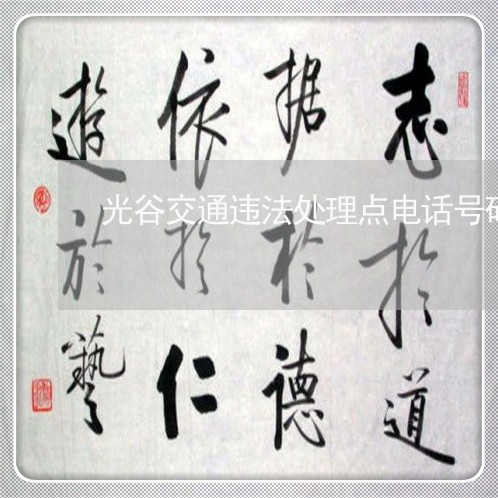 志於道
据於德
依於仁
遊於藝
光谷交通违法处理点电话号